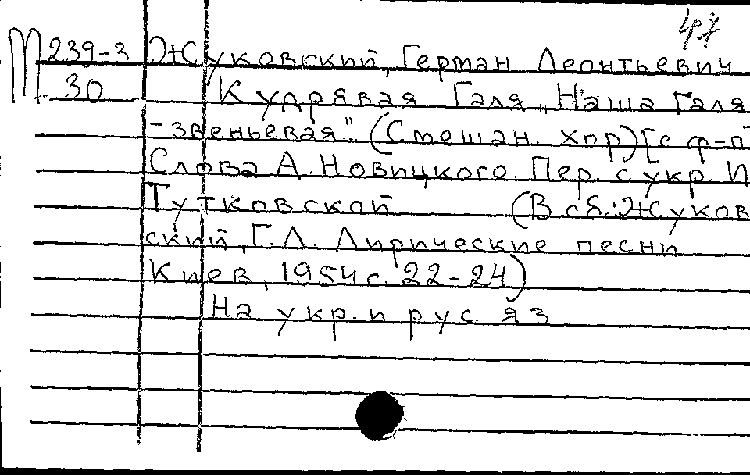 47
М 239-3 Жуковский, Герман Леонтьевич
30 Кудрявая Галя „Наша Галя
- звеньевая". (Смешан. хор) [с ф-п
Слова А. Новицкого. Пер. с укр. И
Тутковской (В сб.: Жуков
ский, Г. Л. Лирические песни
Киев, 1954 с. 22-24)
На укр. и рус яз